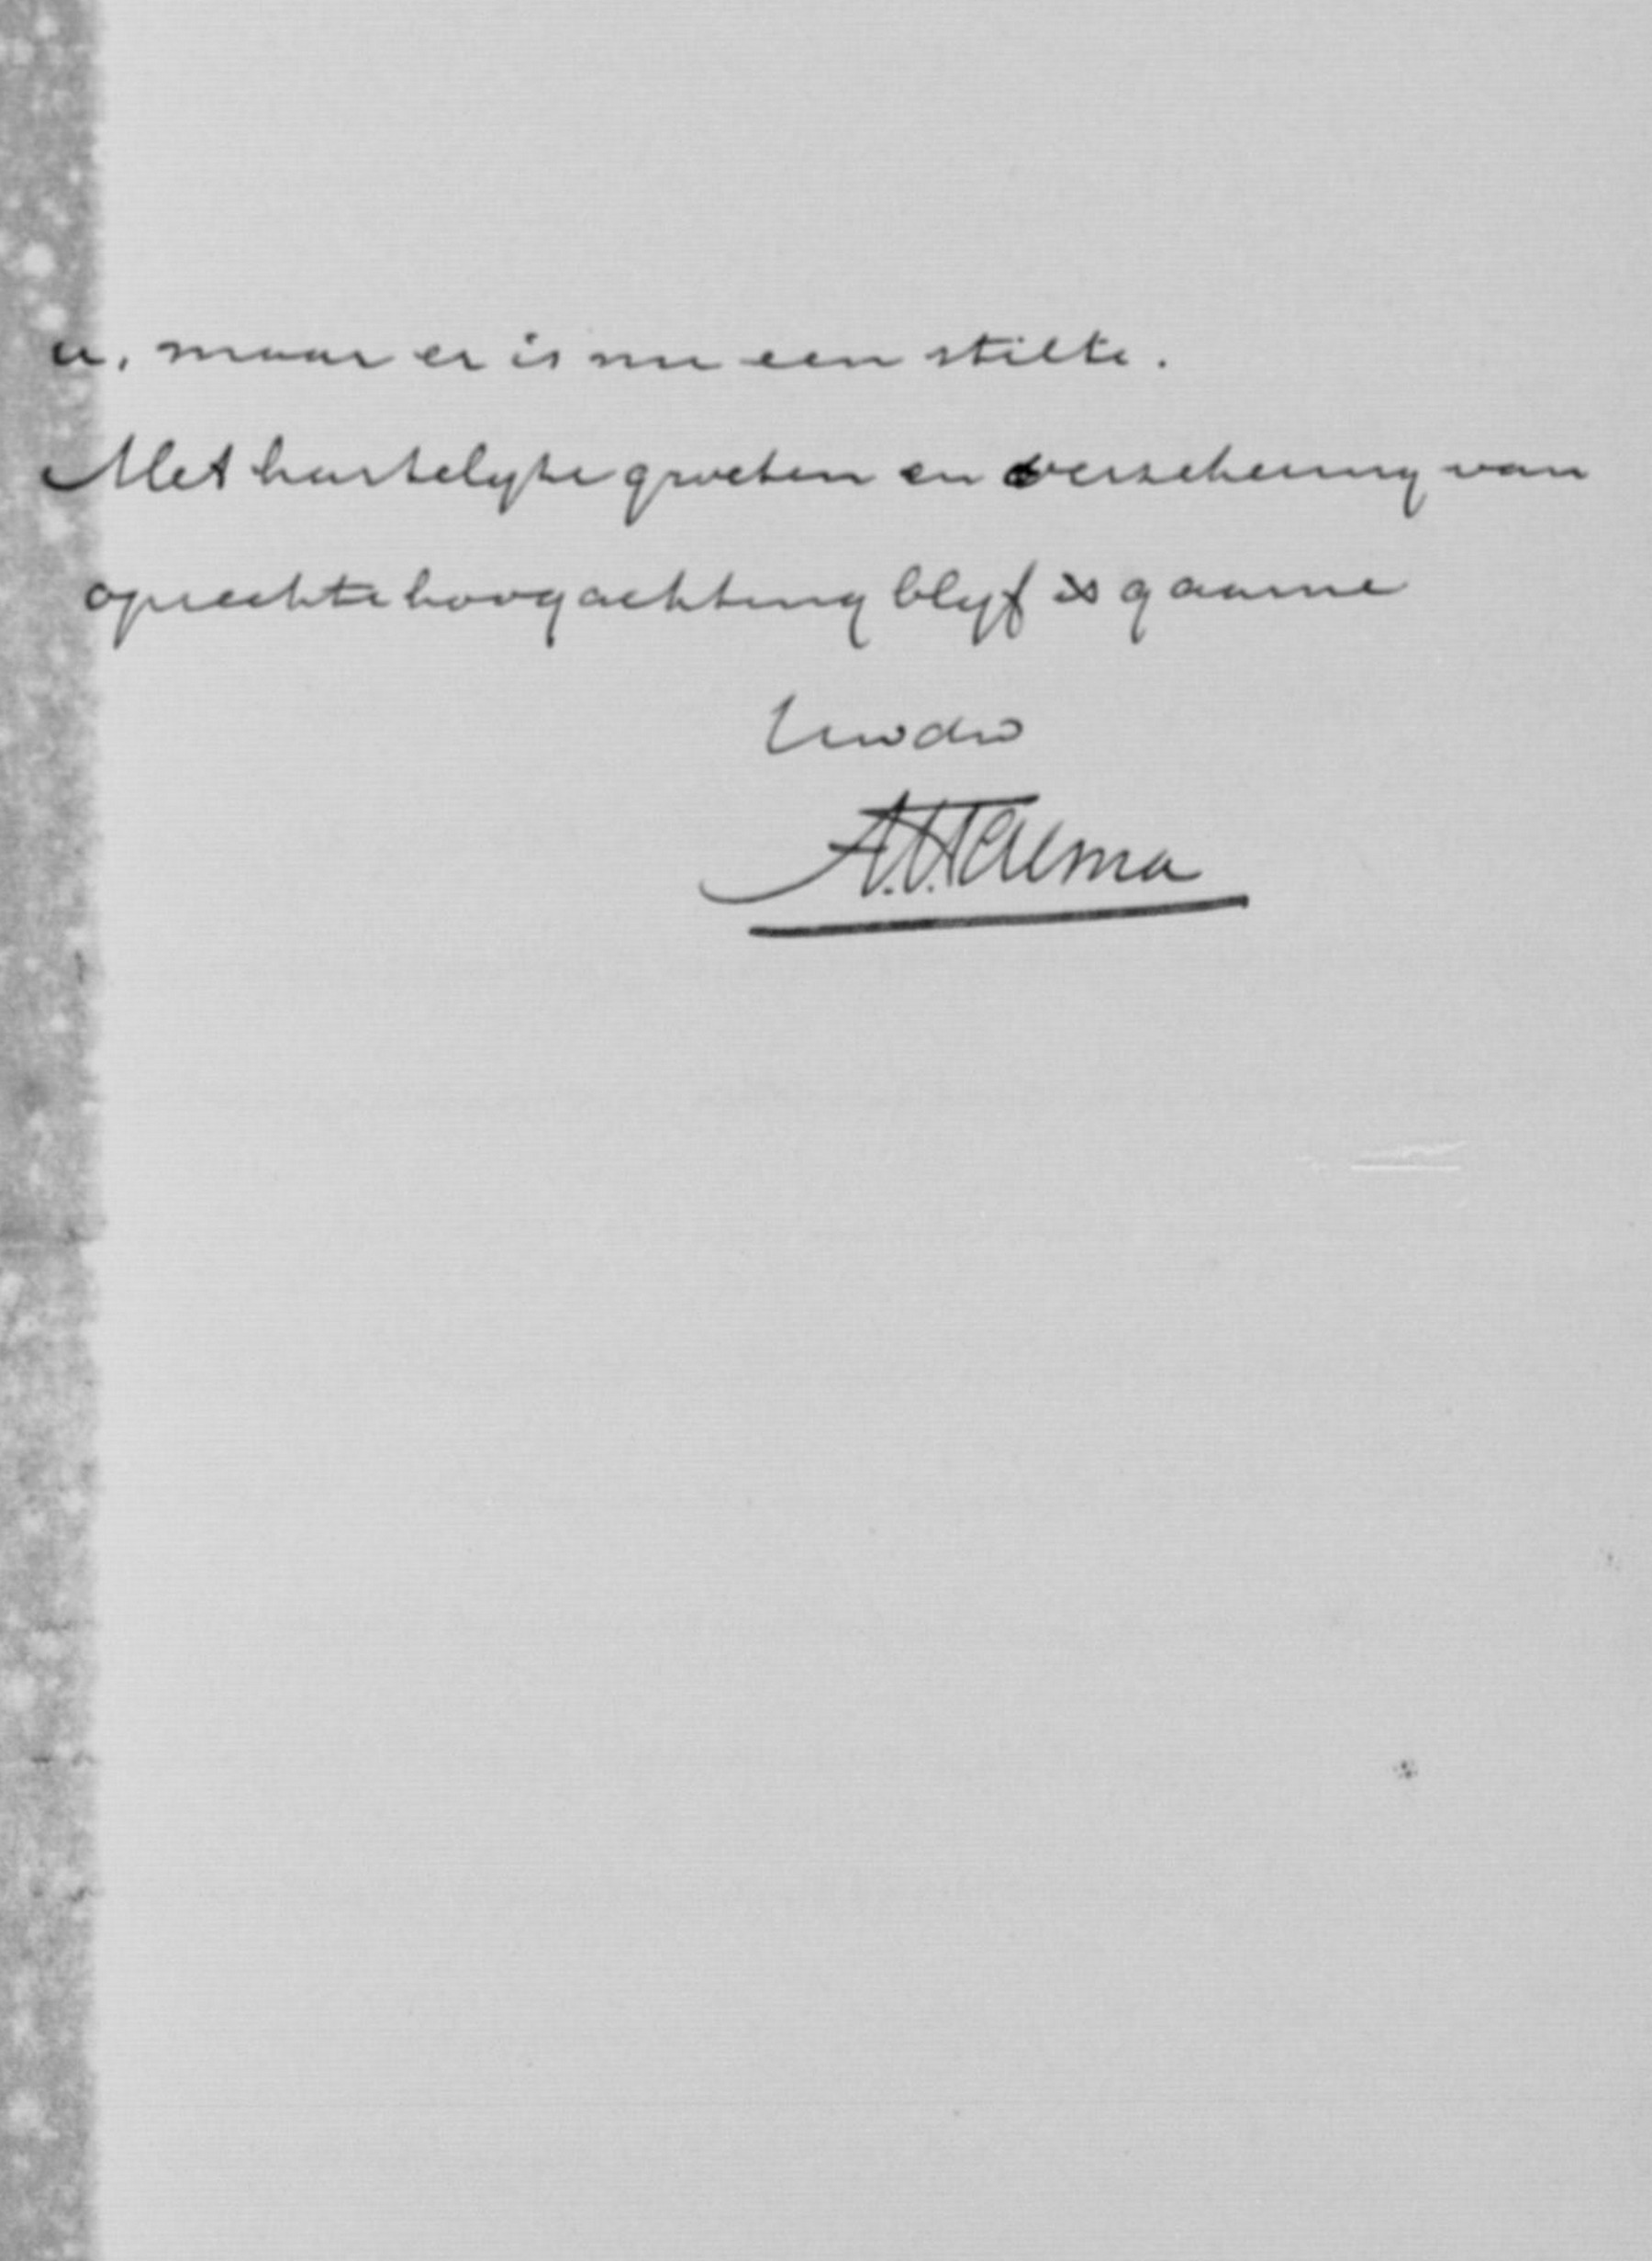 u, maar er is nu een stilte.
Met hartelyke groeten en verzekering van
oprechte hoogachting blyf ik gaarne
Uwdw
A.S.Talma